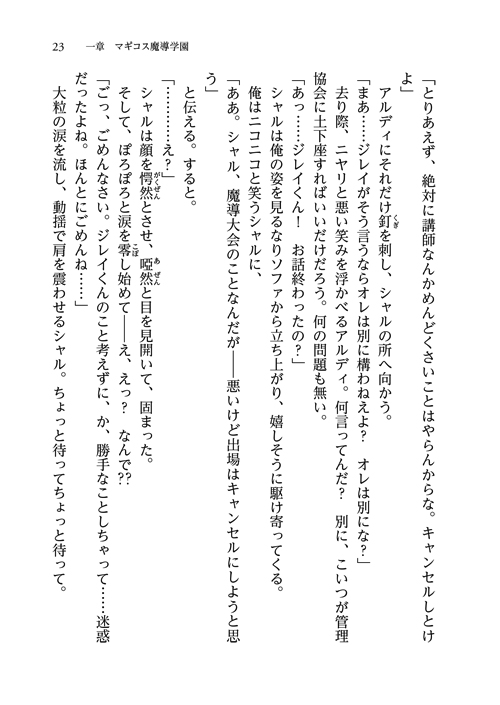 23　一章　マギコス魔導学園
「とりあえず、絶対に講師なんかめんどくさいことはやらんからな。キャンセルしとけ
よ」
　アルディにそれだけ釘を刺し、シャルの所へ向かう。
「まあ……ジレイがそう言うならオレは別に構わねえよ？　オレは別にな？」
　去り際、ニヤリと悪い笑みを浮かべるアルディ。何言ってんだ？　別に、こいつが管理
協会に土下座すればいいだけだろう。何の問題も無い。
「あっ……ジレイくん！　お話終わったの？」
　シャルは俺の姿を見るなりソファから立ち上がり、嬉しそうに駆け寄ってくる。
　俺はニコニコと笑うシャルに、
「ああ。シャル、魔導大会のことなんだが――悪いけど出場はキャンセルにしようと思
う」
　と伝える。すると。
「…………え？」
　シャルは顔を愕然とさせ、啞然と目を見開いて、固まった。
　そして、ぽろぽろと涙を零し始めて――え、えっ？　なんで??
「ごっ、ごめんなさい。ジレイくんのこと考えずに、か、勝手なことしちゃって……迷惑
だったよね。ほんとにごめんね……」
　大粒の涙を流し、動揺で肩を震わせるシャル。ちょっと待ってちょっと待って。